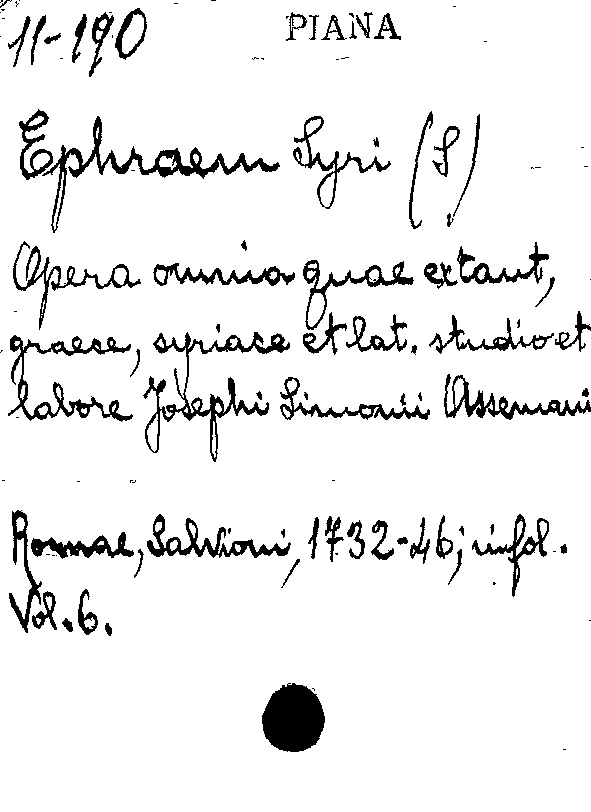 11-190 PIANA
Ephraem Syri (S.)
Opera omnia quae extant,
graece, syriace et lat. studio et
labore Josephi Simonii Assemani
Romae, Salvioni, 1732-46; in fol.
Vol. 6.